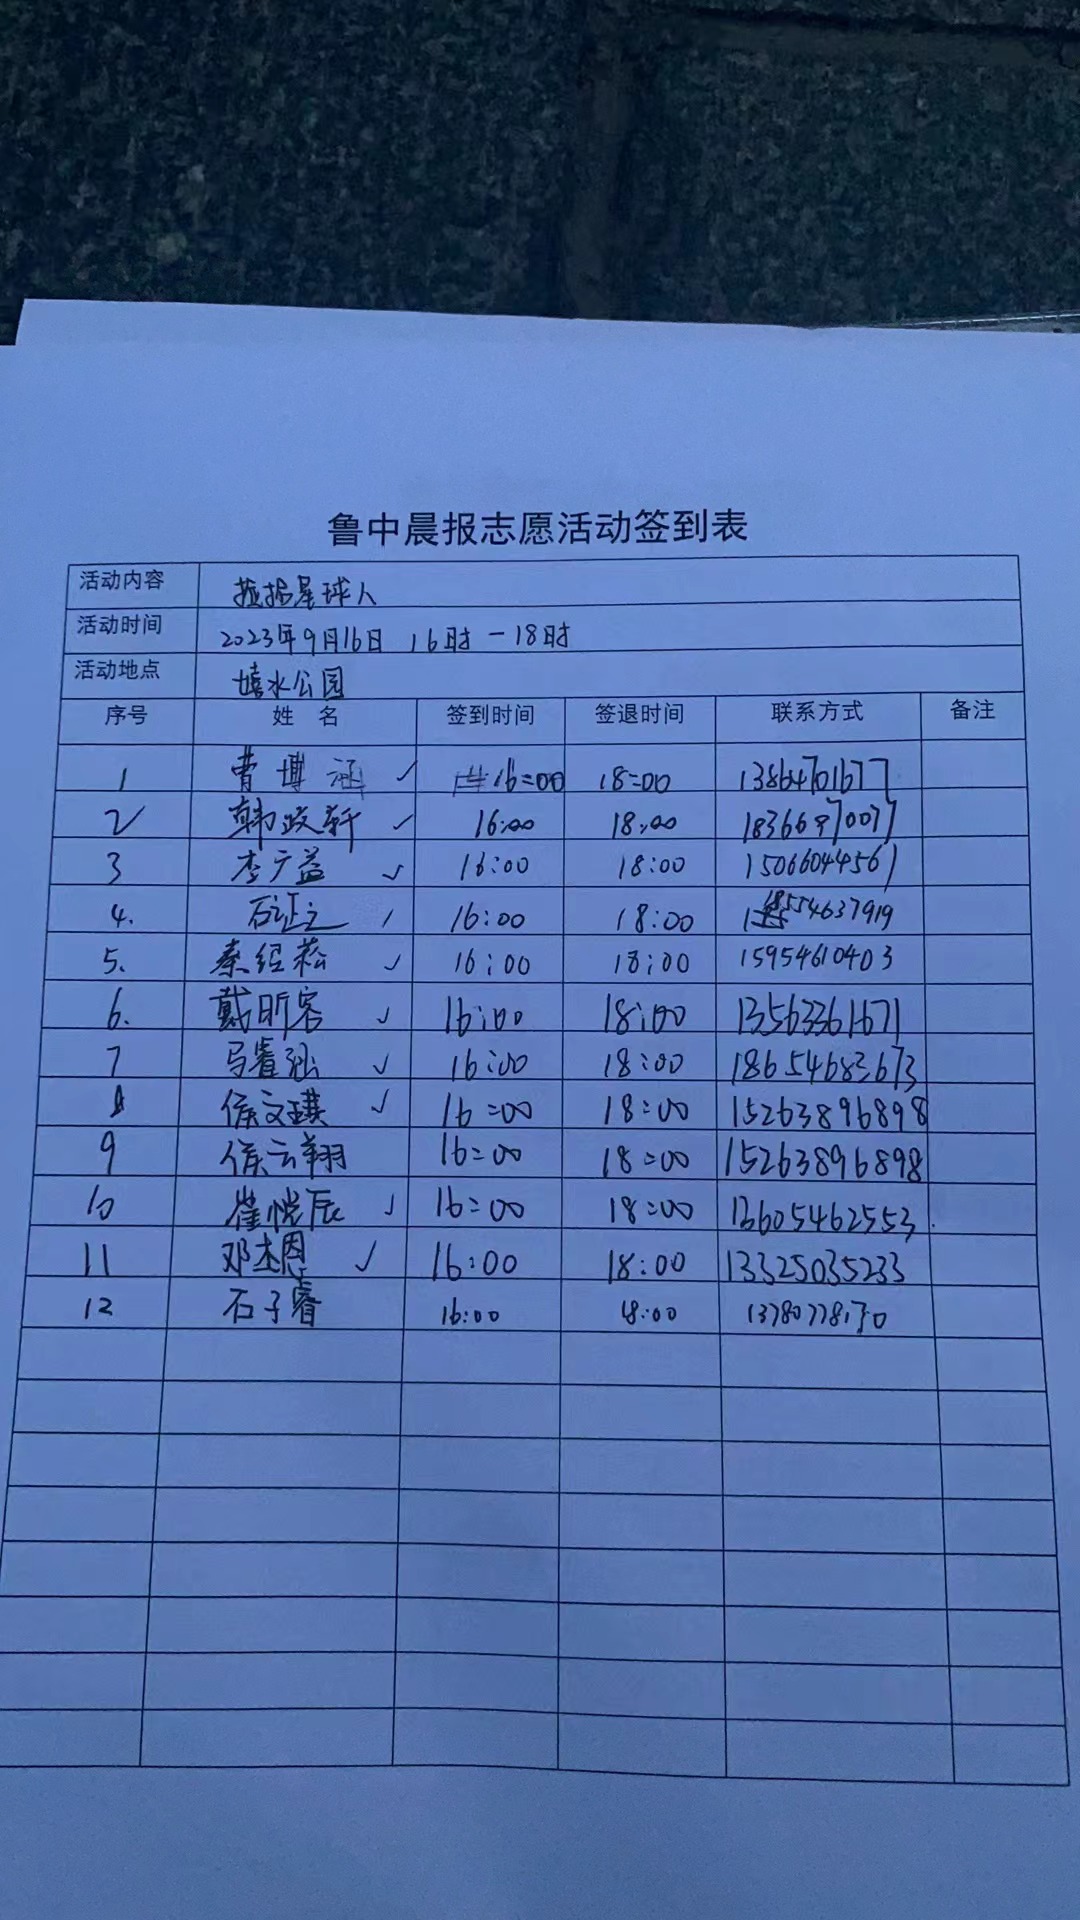 鲁中晨报志愿活动签到表
活动内容 捡拾星球人
活动时间 2023年9月16日 16时-18时
活动地点 嬉水公园
序号 姓名 签到时间 签退时间 联系方式 备注
1 曹博涵 ✓ 16:00 18:00 13864701677
2 韩政轩 ✓ 16:00 18:00 18366970077
3 李广益 ✓ 16:00 18:00 15066044561
4. 石证之 16:00 18:00 18554637919
5. 秦绍菘 ✓ 16:00 18:00 15954610403
6. 戴昕容 ✓ 16:00 18:00 13563361671
7 马睿涵 ✓ 16:00 18:00 18654683673
8 侯文琪 ✓ 16:00 18:00 15263896898
9 侯云翔 16:00 18:00 15263896898
10 崔恺辰 ✓ 16:00 18:00 13605462553
11 邓杰恩 ✓ 16:00 18:00 13325035233
12 石子睿 16:00 18:00